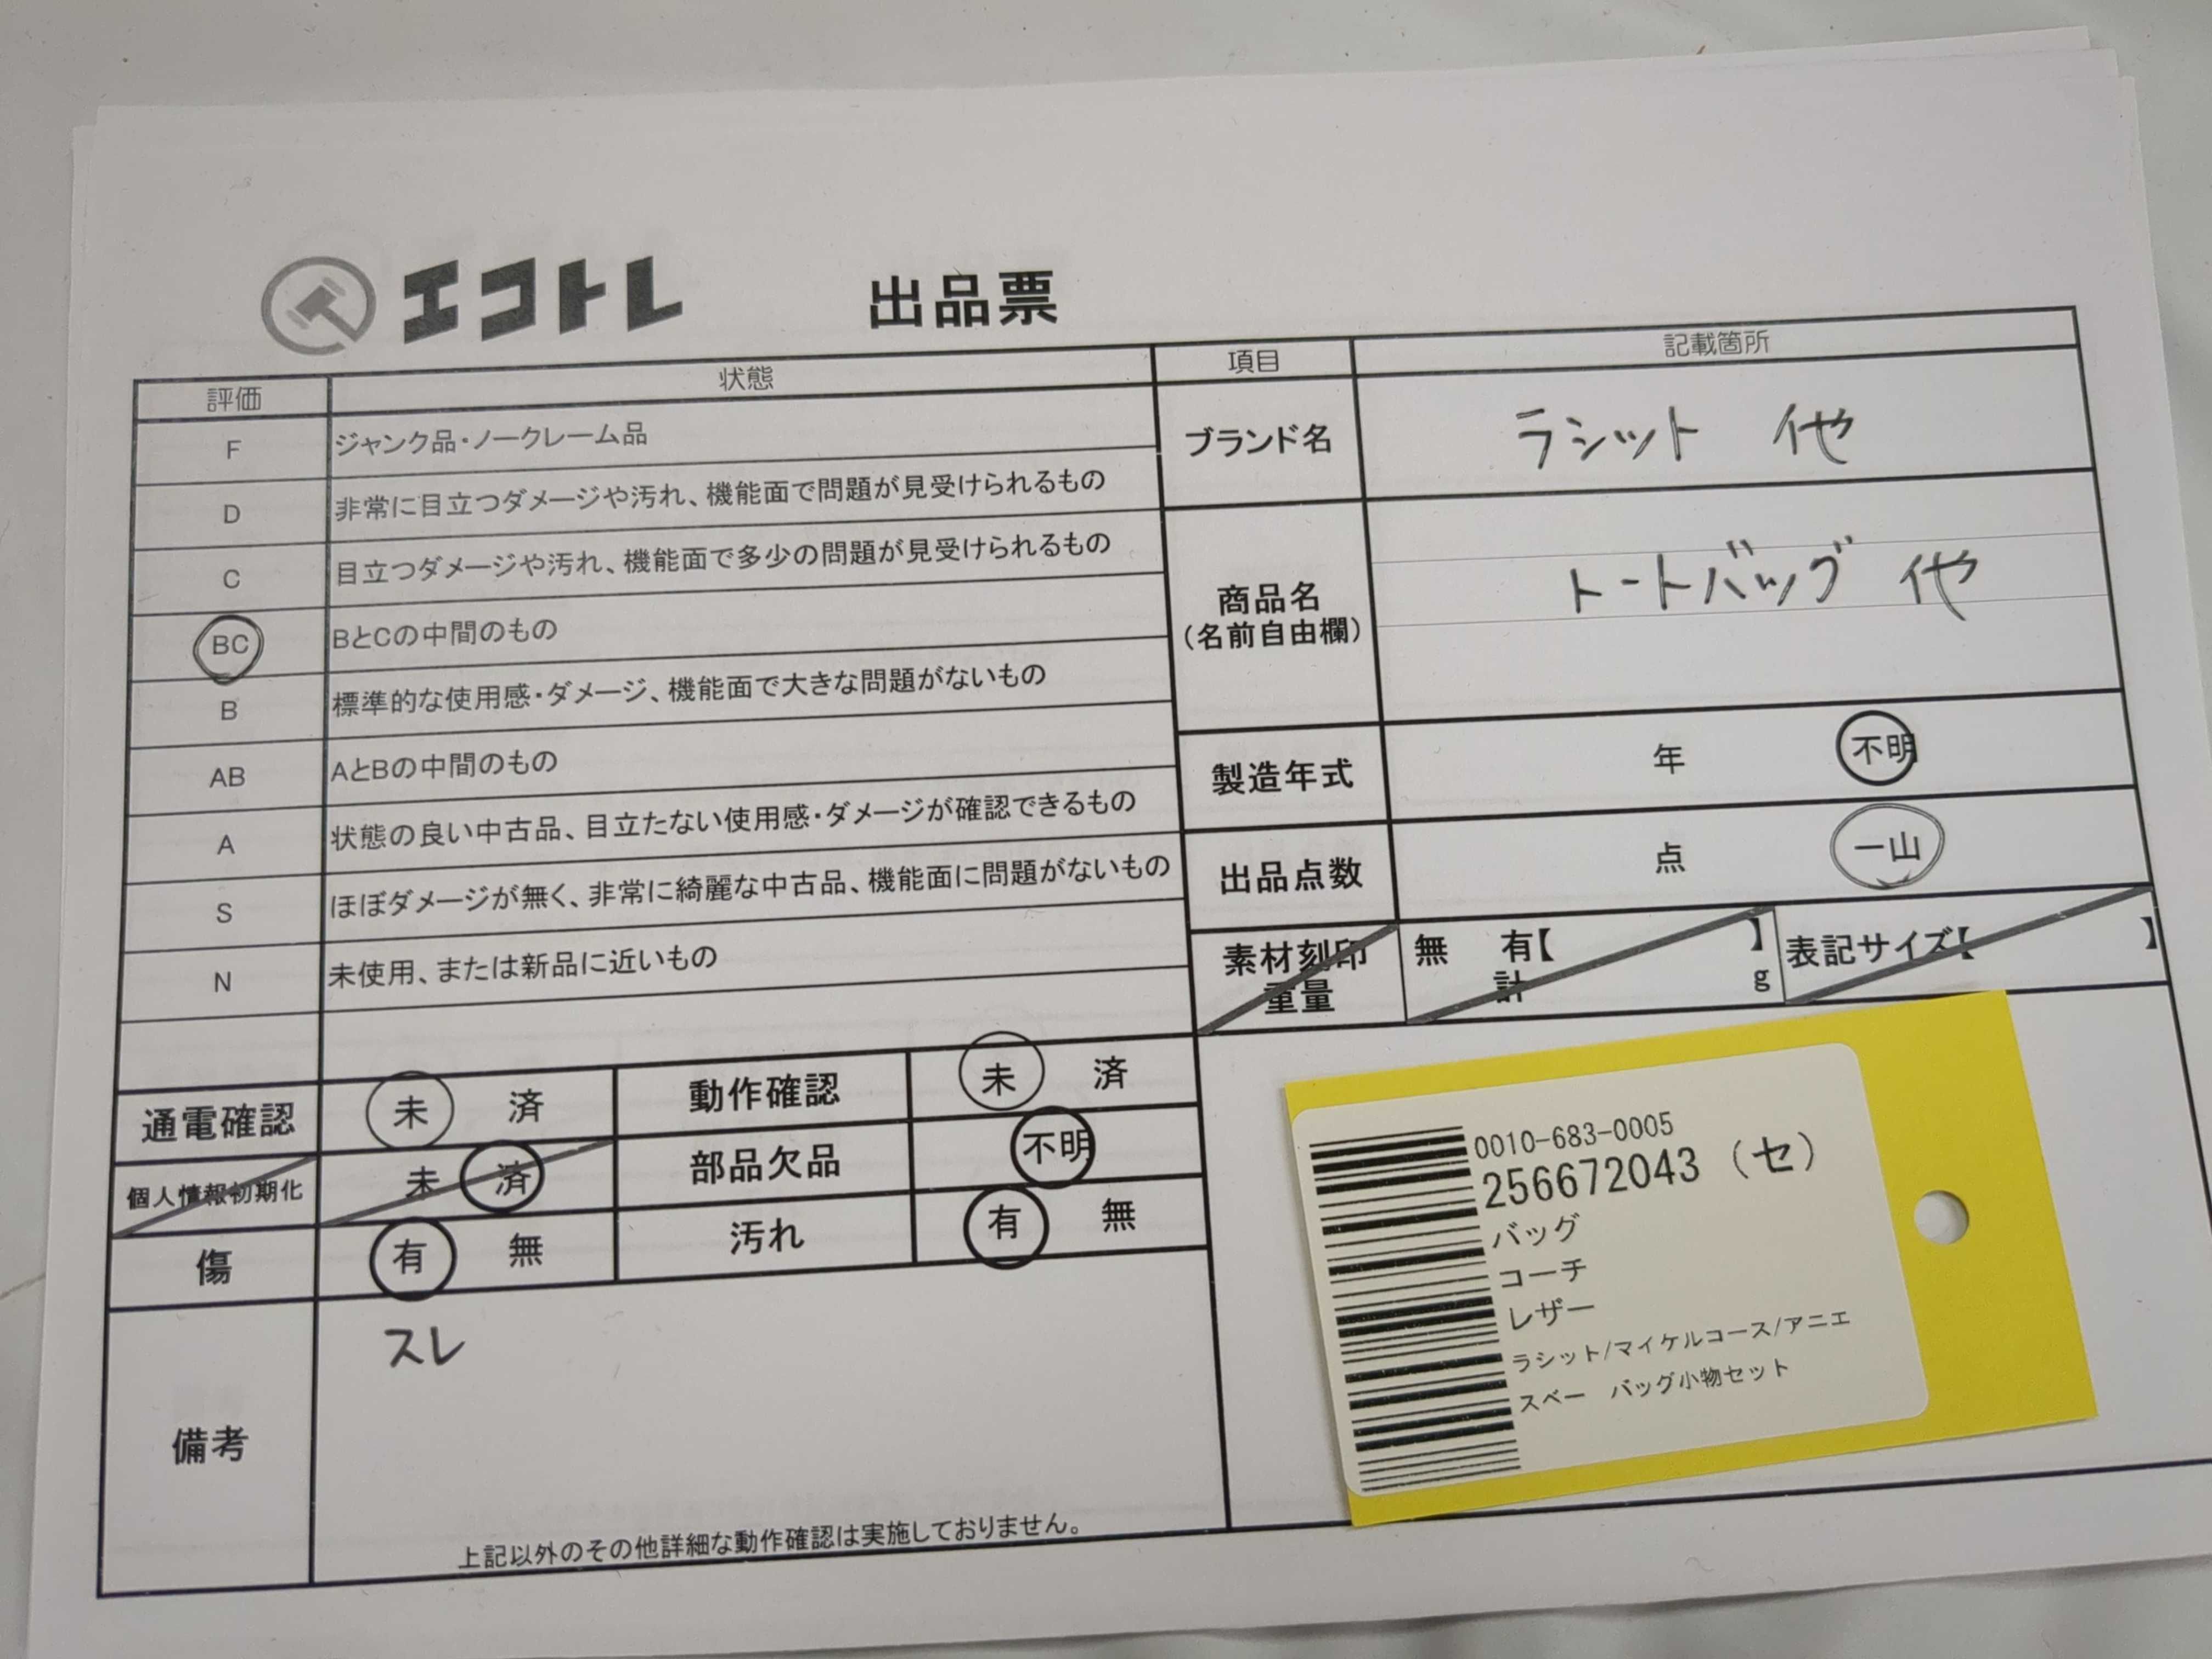 エコトレ 出品票
評価 状態 項目 記載箇所
F ジャンク品・ノークレーム品
D 非常に目立つダメージや汚れ、機能面で問題が見受けられるもの
C 目立つダメージや汚れ、機能面で多少の問題が見受けられるもの
BC BとCの中間のもの
B 標準的な使用感・ダメージ、機能面で大きな問題がないもの
AB AとBの中間のもの
A 状態の良い中古品、目立たない使用感・ダメージが確認できるもの
S ほぼダメージが無く、非常に綺麗な中古品、機能面に問題がないもの
N 未使用、または新品に近いもの
ブランド名 ラシット 他
商品名 トートバッグ 他
(名前自由欄)
製造年式 年 不明
出品点数 点 一山
素材刻印 無 有【 】 表記サイズ【 】
重量 計 g
通電確認 未 済 動作確認 未 済
個人情報初期化 未 済 部品欠品 不明
傷 有 無 汚れ 有 無
備考 スレ
上記以外のその他詳細な動作確認は実施しておりません。
0010-683-0005
256672043 (セ)
バッグ
コーチ
レザー
ラシット/マイケルコース/アニエ
スベー バッグ小物セット